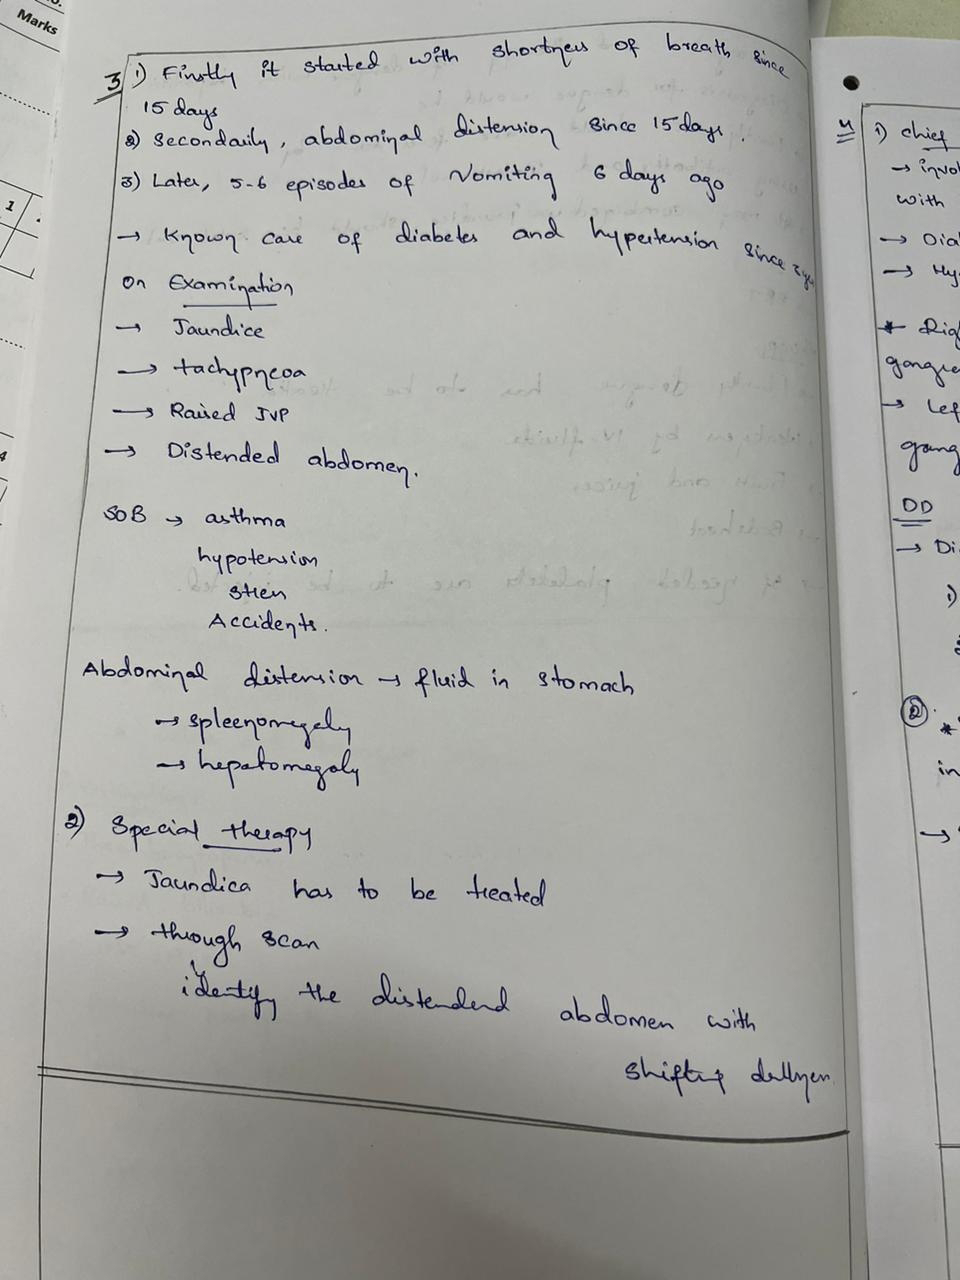 Marks
1
4
3 1) Firstly it started with shortness of breath since
15 days
2) Secondaily, abdominal distension since 15 days.
3) Later, 5-6 episodes of Vomiting 6 days ago
→ Known case of diabetes and hypertension since
On Examination
→ Jaundice
→ tachypnoea
→ Raised JVP
→ Distended abdomen.
SOB → asthma
hypotension
Accidents.
Abdominal distension → fluid in stomach
→ spleenomegaly
→ hepatomegaly
2) Special therapy
→ Jaundica has to be treated
→ through scan
identify the distendend abdomen with
shifting
4 1) chief
→ invol
with
→ Dia
→ Hy
* Rig
gangre
→ Lef
gang
DD
→ Di
1)
2
*
in
→